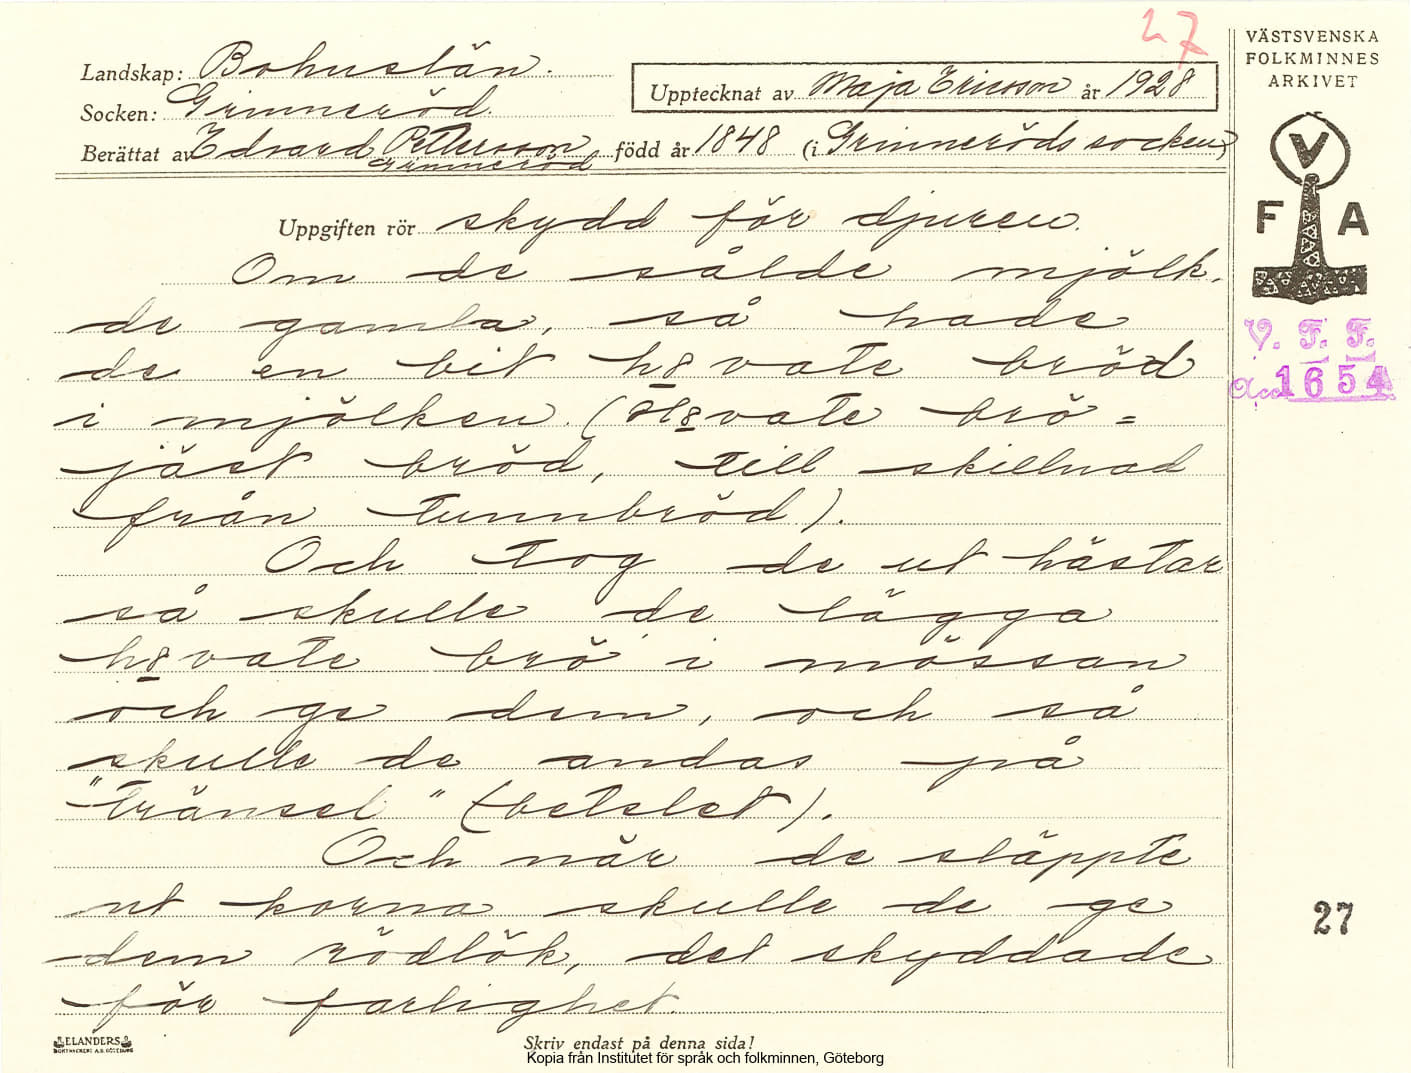 27
VÄSTSVENSKA
FOLKMINNES
ARKIVET
Landskap: Bohuslän.
Upptecknat av Maja Ericsson år 1928
Socken: Grinneröd.
Berättat av Edvard Pettersson född år 1848 (i Grinneröds socken)
Grinneröd
V
F A
Uppgiften rör skydd för djuren.
Om de sålde mjölk,
de gamla, så hade
de en bit h8vate bröd
i mjölken. (H8vate brö =
jäst bröd, till skillnad
från tunnbröd).
Och tog de ut hästar
så skulle de lägga
h8vate brö i mössan
och ge dem, och så
skulle de andas på
"tränsel" (betslet).
Och när de släppte
ut korna skulle de ge
dem rödlök, det skyddade
för farlighet.
V. F. F.
Acc. 1654
27
ELANDERS
BOKTRYCKERI A.B. GÖTEBORG
Skriv endast på denna sida!
Kopia från Institutet för språk och folkminnen, Göteborg